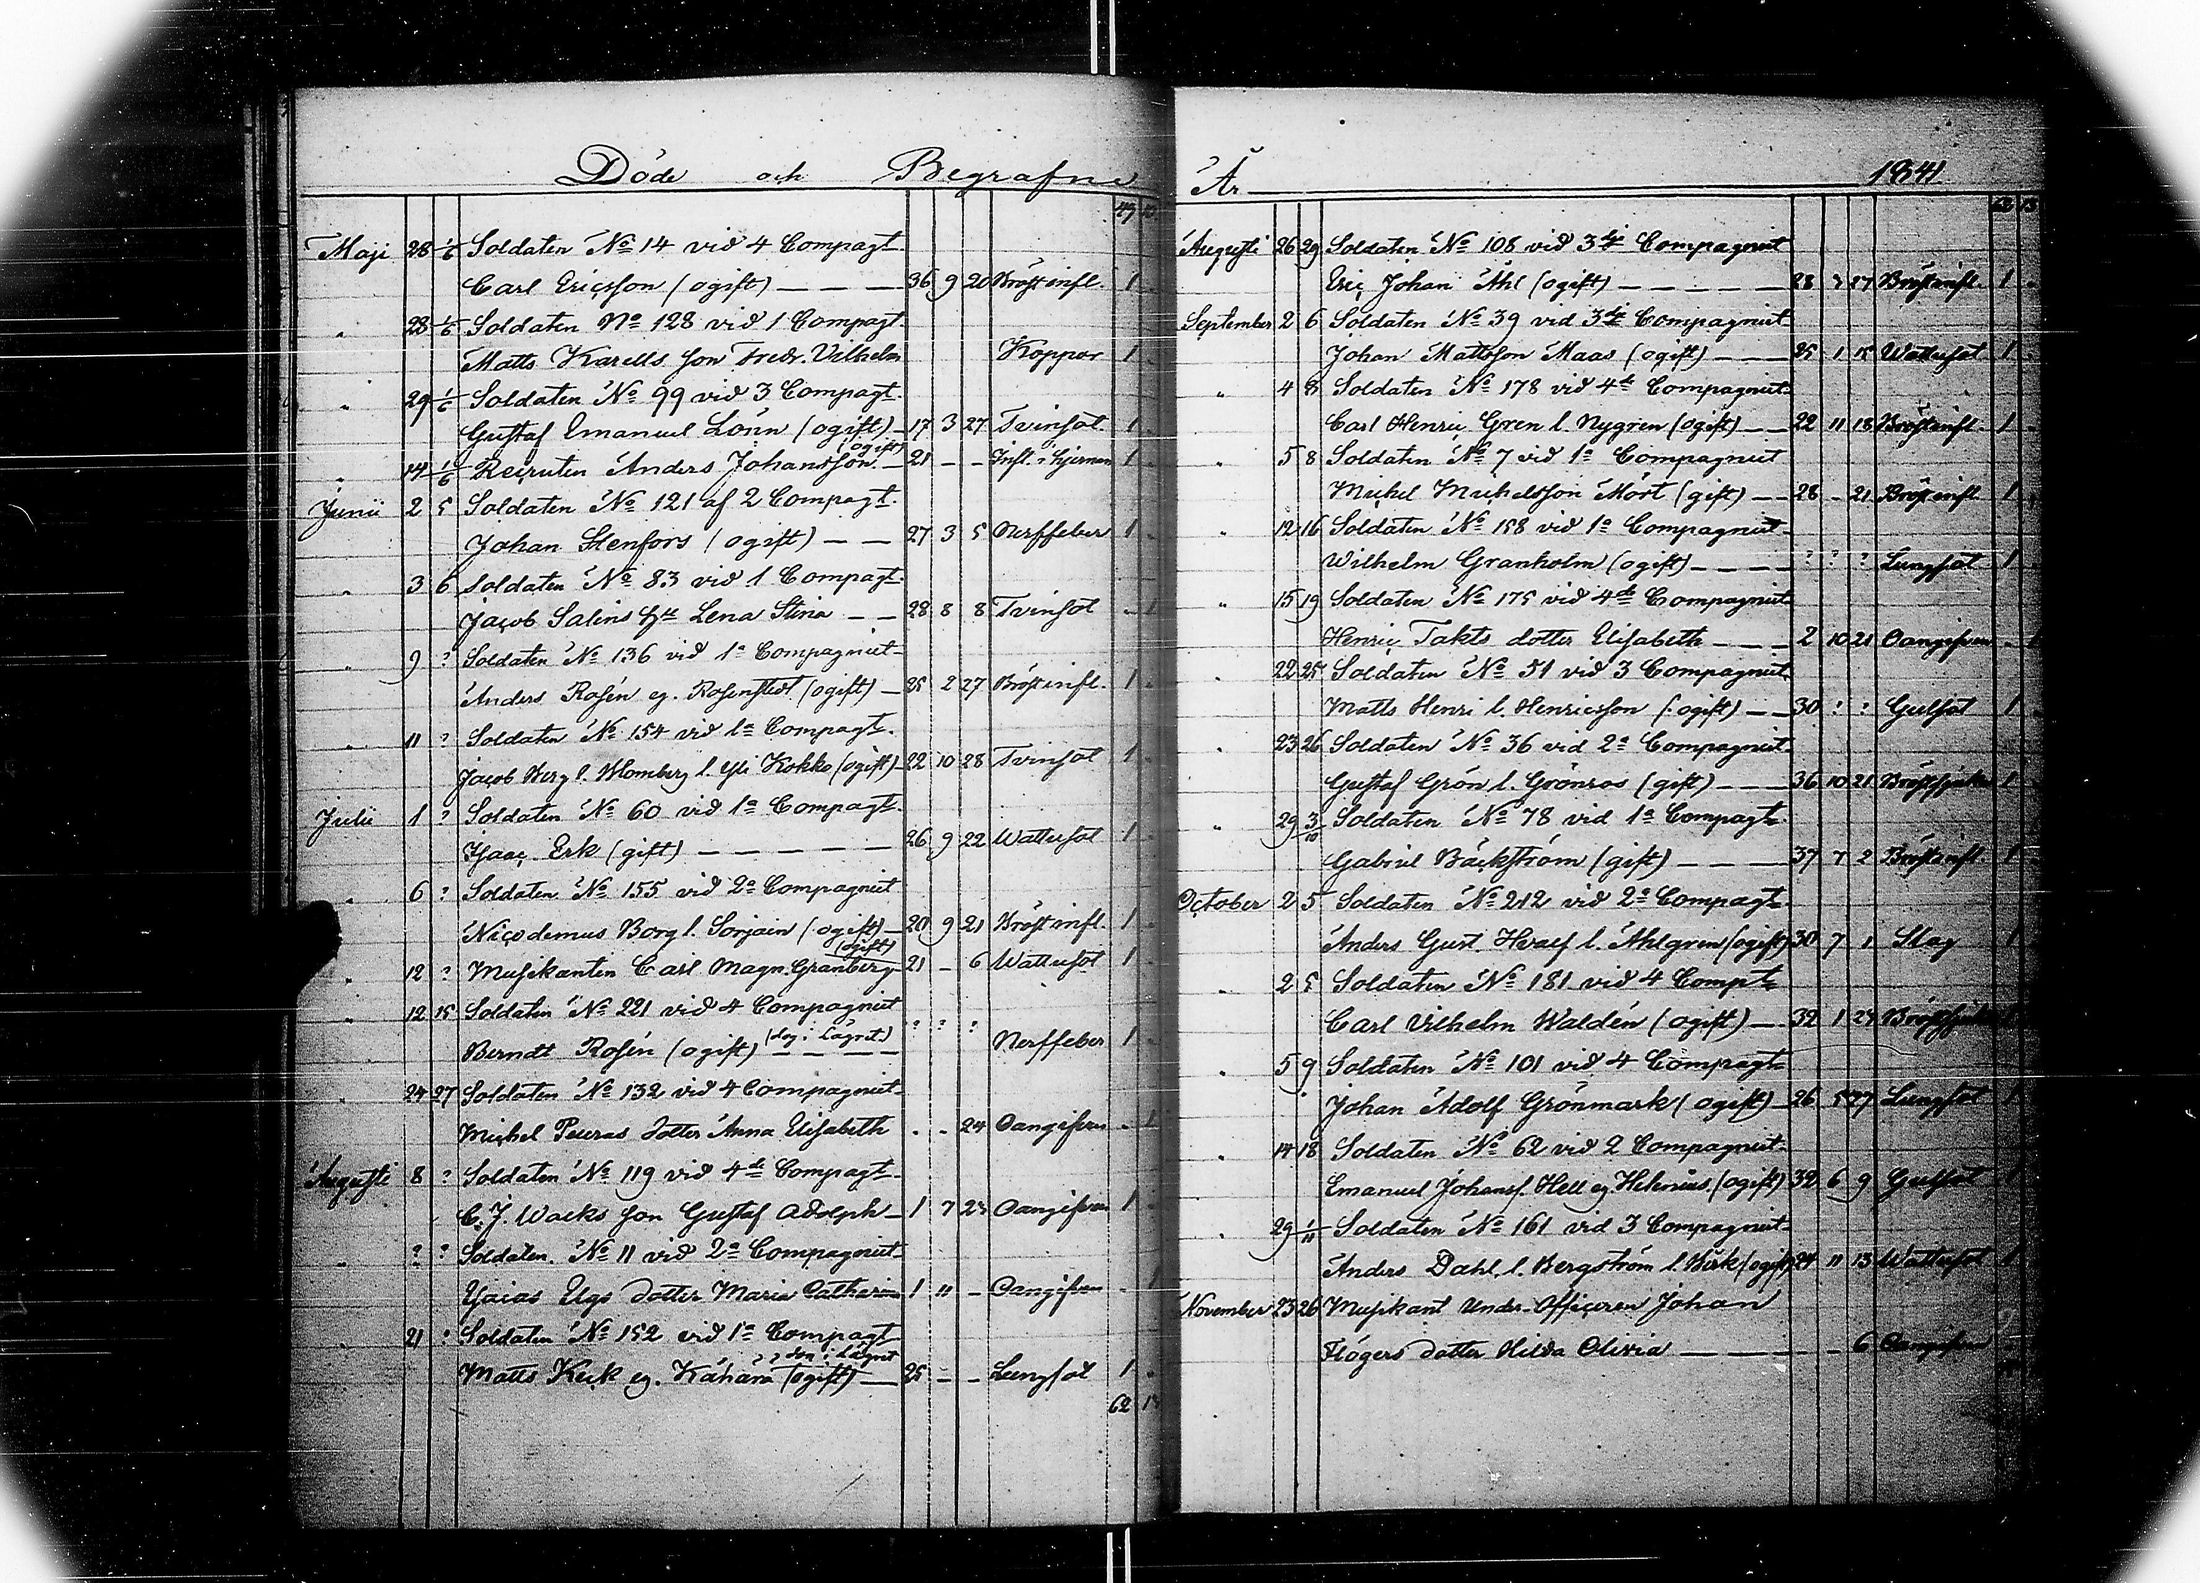 Döde och Begrafne
49 13
Maji 28 1/6 Soldaten No 14 vid 4 Compagt
Carl Ericsson (ogift) — — — 36 9 20 Bröstinfl. 1 .
" 28 1/6 Soldaten No 128 vid 1 Compagt.
Matts Karells son Fredr. Vilhelm Koppor 1 .
" 29 1/6 Soldaten No 99 vid 3 Compagt.
Gustaf Emanuel Lönn (ogift) — 17 3 27 Tvinsot 1 .
(ogift)
" 14 1/6 Recruten Anders Johansson — 21 — — Infl. i hjernan 1 .
Junii 2 5 Soldaten No 121 af 2 Compagt.
Johan Stenfors (ogift) — — 27 3 5 Nerffeber 1 .
" 3 6 Soldaten No 83 vid 1 Compagt.
Jacob Salins hu Lena Stina — — 28 8 8 Tvinsot - 1
" 9 ? Soldaten No 136 vid 1a Compagniet
Anders Rosén eg. Rosenstedt (ogift) — 25 2 27 Bröstinfl. 1 .
" 11 ? Soldaten No 154 vid 1a Compagt.
Jacob Berg l. Blomberg l. Yli Kokko (ogift) — 22 10 28 Tvinsot 1 .
Julii 1 ? Soldaten No 60 vid 1a Compagt.
Isaac Erk (gift) — — — — — 26 9 22 Wattusot 1 .
" 6 ? Soldaten No 155 vid 2a Compagniet
Nicodemus Borg l. Sorjain (ogift) — 20 9 21 Bröstinfl. 1 .
(ogift)
" 12 ? Musikanten Carl Magn. Granberg 21 — 6 Wattusot 1 .
" 12 15 Soldaten No 221 vid 4 Compagniet
Berndt Rosén (ogift) (dog i Lägret) — — — — ? ? ? Nerffeber 1 .
" 24 27 Soldaten No 132 vid 4 Compagniet
Michel Peuras dotter Anna Elisabeth . . 24 Oangifven . 1
Augusti 8 ? Soldaten No 119 vid 4de Compagt
C. J. Wacks son Gustaf Adolph — 1 7 23 Oangifven 1 .
" ? ? Soldaten No 11 vid 2a Compagniet
Esaias Ugs dotter Maria Catharina 1 11 — Oangifven . 1
" 21 ? Soldaten No 152 vid 1a Compagt
dog i Lägret
Matts Keck eg. Kähärä (ogift) — 25 — — Lungsot 1 .
62 13
År — 1841
62 13
Augusti 26 29 Soldaten No 108 vid 3dje Compagniet
Eric Johan Åhl (ogift) — — — — — 28 27 Bröstinfl. 1 .
September 2 6 Soldaten No 39 vid 3dje Compagniet
Johan Mattsson Maas (ogift) — — 25 1 15 Wattusot 1 .
" 4 8 Soldaten No 178 vid 4de Compagniet
Carl Henric Gren l. Nygren (ogift) — — 22 11 18 Bröstinfl 1 .
" 5 8 Soldaten No 7 vid 1a Compagniet
Michel Michelsson Mört (gift) — — 28 - 21 Bröstinfl 1 .
" 12 16 Soldaten No 158 vid 1a Compagniet
Wilhelm Granholm (ogift) — — — — ? ? ? Lungsot 1
" 15 19 Soldaten No 175 vid 4de Compagniet
Henric Takts dotter Elisabeth — — — 2 10 21 Oangifven . 1
" 22 25 Soldaten No 51 vid 3 Compagniet
Matts Henri l. Henricsson (ogift) — — 30 ? ? Gulsot 1
" 23 26 Soldaten No 36 vid 2a Compagniet
Gustaf Grön l. Grönros (gift) — — — 36 10 21 Bröstsjuka 1 .
" 29 3/10 Soldaten No 78 vid 1a Compagt.
Gabriel Bäckström (gift) — — — 37 7 2 Bröstinfl 1 .
October 2 5 Soldaten No 212 vid 2a Compagt
Anders Gust. Hvaef l. Åhlgren (ogift) 30 7 1 Slag 1
" 2 5 Soldaten No 181 vid 4 Compt
Carl Vilhelm Waldén (ogift) — 32 1 Bröstsjuka 1
" 5 9 Soldaten No 101 vid 4 Compagt
Johan Adolf Grönmark (ogift) — 26 5 27 Lungsot 1
" 14 18 Soldaten No 62 vid 2 Compagniet
Emanuel Johanss. Hell eg. Helenius (ogift) 32 6 9 Gulsot 1
" 29 1/11 Soldaten No 161 vid 3 Compagniet
Anders Dahl l. Bergström l. Birk (ogift) 24 11 13 Wattusot 1
November 23 26 Musikant Under Officeren Johan
Flögers dotter Hilda Olivia — — — — — 6 Oangifven